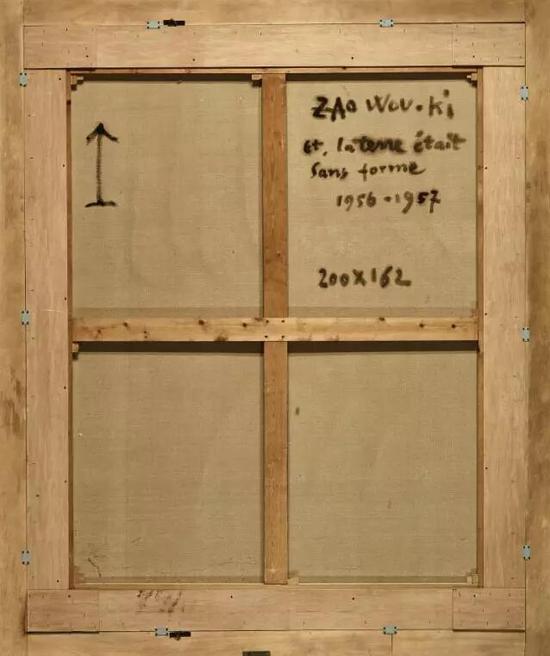 ZAO WOU.Ki
et, la terre était
Sans forme
1956-1957
200X162